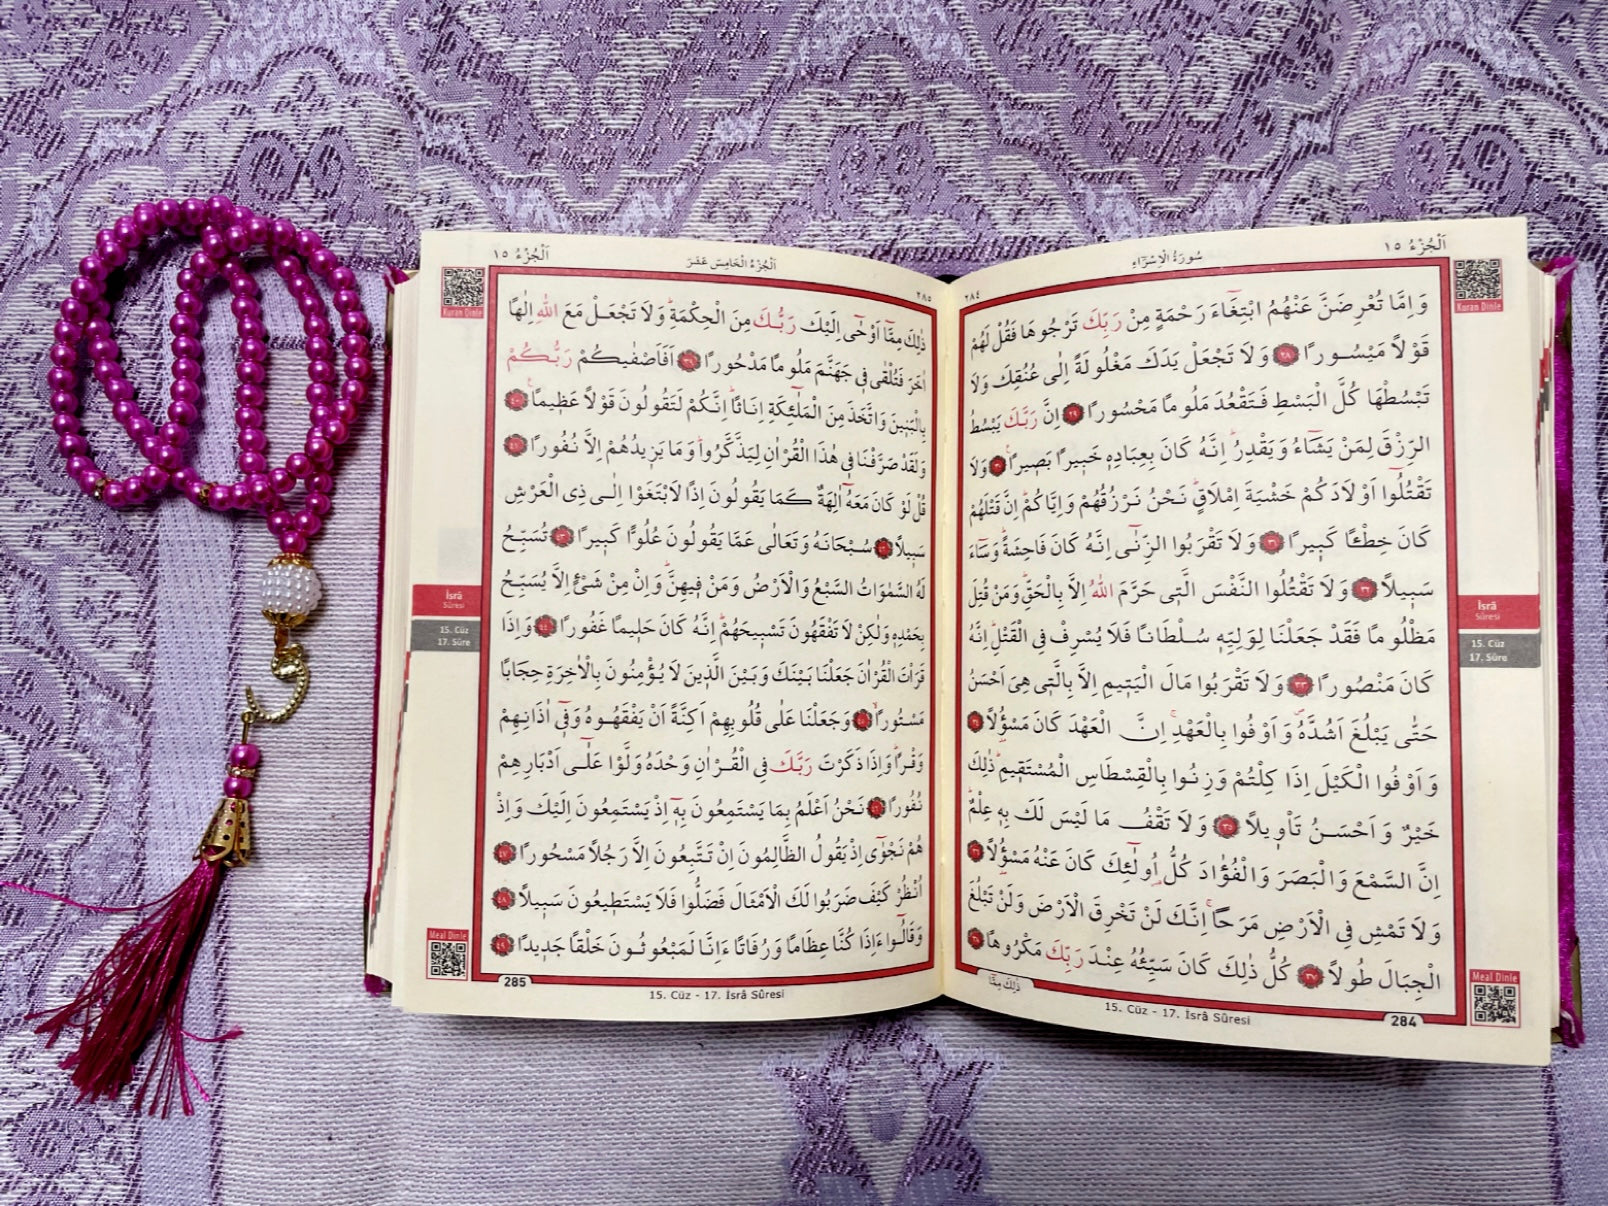 اَلْجُزْءُ ١٥
سُورَةُ الْاِسْرَاءِ
٢٨٤
Kuran Dinle
وَاِمَّا تُعْرِضَنَّ عَنْهُمُ ابْتِغَٓاءَ رَحْمَةٍ مِنْ رَبِّكَ تَرْجُوهَا فَقُلْ لَهُمْ
قَوْلًا مَيْسُورًا ﴿٢٨﴾ وَلَا تَجْعَلْ يَدَكَ مَغْلُولَةً اِلٰى عُنُقِكَ وَلَا
تَبْسُطْهَا كُلَّ الْبَسْطِ فَتَقْعُدَ مَلُومًا مَحْسُورًا ﴿٢٩﴾ اِنَّ رَبَّكَ يَبْسُطُ
الرِّزْقَ لِمَنْ يَشَٓاءُ وَيَقْدِرُۜ اِنَّهُ كَانَ بِعِبَادِهٖ خَبٖيرًا بَصٖيرًا ﴿٣٠﴾ وَلَا
تَقْتُلُٓوا اَوْلَادَكُمْ خَشْيَةَ اِمْلَاقٍۜ نَحْنُ نَرْزُقُهُمْ وَاِيَّاكُمْۜ اِنَّ قَتْلَهُمْ
كَانَ خِطْئًا كَبٖيرًا ﴿٣١﴾ وَلَا تَقْرَبُوا الزِّنٰٓى اِنَّهُ كَانَ فَاحِشَةًۜ وَسَٓاءَ
سَبٖيلًا ﴿٣٢﴾ وَلَا تَقْتُلُوا النَّفْسَ الَّتٖى حَرَّمَ اللّٰهُ اِلَّا بِالْحَقِّۜ وَمَنْ قُتِلَ
مَظْلُومًا فَقَدْ جَعَلْنَا لِوَلِيِّهٖ سُلْطَانًا فَلَا يُسْرِفْ فِى الْقَتْلِۜ اِنَّهُ
كَانَ مَنْصُورًا ﴿٣٣﴾ وَلَا تَقْرَبُوا مَالَ الْيَتٖيمِ اِلَّا بِالَّتٖى هِىَ اَحْسَنُ
حَتّٰى يَبْلُغَ اَشُدَّهُۖ وَاَوْفُوا بِالْعَهْدِۚ اِنَّ الْعَهْدَ كَانَ مَسْؤُلًا ﴿٣٤﴾
وَاَوْفُوا الْكَيْلَ اِذَا كِلْتُمْ وَزِنُوا بِالْقِسْطَاسِ الْمُسْتَقٖيمِۜ ذٰلِكَ
خَيْرٌ وَاَحْسَنُ تَاْوٖيلًا ﴿٣٥﴾ وَلَا تَقْفُ مَا لَيْسَ لَكَ بِهٖ عِلْمٌۜ
اِنَّ السَّمْعَ وَالْبَصَرَ وَالْفُؤٰادَ كُلُّ اُو۬لٰٓئِكَ كَانَ عَنْهُ مَسْؤُلًا ﴿٣٦﴾
وَلَا تَمْشِ فِى الْاَرْضِ مَرَحًاۚ اِنَّكَ لَنْ تَخْرِقَ الْاَرْضَ وَلَنْ تَبْلُغَ
الْجِبَالَ طُولًا ﴿٣٧﴾ كُلُّ ذٰلِكَ كَانَ سَيِّئُهُ عِنْدَ رَبِّكَ مَكْرُوهًا ﴿٣٨﴾
ذٰلِكَ مِمَّا
İsrâ
Sûresi
15. Cüz
17. Sûre
Meal Dinle
15. Cüz - 17. İsrâ Sûresi
284
اَلْجُزْءُ ١٥
اَلْجُزْءُ الْخَامِسَ عَشَرَ
٢٨٥
Kuran Dinle
ذٰلِكَ مِمَّٓا اَوْحٰٓى اِلَيْكَ رَبُّكَ مِنَ الْحِكْمَةِۜ وَلَا تَجْعَلْ مَعَ اللّٰهِ اِلٰهًا
اٰخَرَ فَتُلْقٰى فٖى جَهَنَّمَ مَلُومًا مَدْحُورًا ﴿٣٩﴾ اَفَاَصْفٰيكُمْ رَبُّكُمْ
بِالْبَنٖينَ وَاتَّخَذَ مِنَ الْمَلٰٓئِكَةِ اِنَاثًاۜ اِنَّكُمْ لَتَقُولُونَ قَوْلًا عَظٖيمًا۟ ﴿٤٠﴾
وَلَقَدْ صَرَّفْنَا فٖى هٰذَا الْقُرْاٰنِ لِيَذَّكَّرُواۜ وَمَا يَزٖيدُهُمْ اِلَّا نُفُورًا ﴿٤١﴾
قُلْ لَوْ كَانَ مَعَهُٓ اٰلِهَةٌ كَمَا يَقُولُونَ اِذًا لَابْتَغَوْا اِلٰى ذِى الْعَرْشِ
سَبٖيلًا ﴿٤٢﴾ سُبْحَانَهُ وَتَعَالٰى عَمَّا يَقُولُونَ عُلُوًّا كَبٖيرًا ﴿٤٣﴾ تُسَبِّحُ
لَهُ السَّمٰوَاتُ السَّبْعُ وَالْاَرْضُ وَمَنْ فٖيهِنَّۜ وَاِنْ مِنْ شَىْءٍ اِلَّا يُسَبِّحُ
بِحَمْدِهٖ وَلٰكِنْ لَا تَفْقَهُونَ تَسْبٖيحَهُمْۜ اِنَّهُ كَانَ حَلٖيمًا غَفُورًا ﴿٤٤﴾ وَاِذَا
قَرَاْتَ الْقُرْاٰنَ جَعَلْنَا بَيْنَكَ وَبَيْنَ الَّذٖينَ لَا يُؤْمِنُونَ بِالْاٰخِرَةِ حِجَابًا
مَسْتُورًاۙ ﴿٤٥﴾ وَجَعَلْنَا عَلٰى قُلُوبِهِمْ اَكِنَّةً اَنْ يَفْقَهُوهُ وَفٖٓى اٰذَانِهِمْ
وَقْرًاۜ وَاِذَا ذَكَرْتَ رَبَّكَ فِى الْقُرْاٰنِ وَحْدَهُ وَلَّوْا عَلٰٓى اَدْبَارِهِمْ
نُفُورًا ﴿٤٦﴾ نَحْنُ اَعْلَمُ بِمَا يَسْتَمِعُونَ بِهٖٓ اِذْ يَسْتَمِعُونَ اِلَيْكَ وَاِذْ
هُمْ نَجْوٰٓى اِذْ يَقُولُ الظَّالِمُونَ اِنْ تَتَّبِعُونَ اِلَّا رَجُلًا مَسْحُورًا ﴿٤٧﴾
اُنْظُرْ كَيْفَ ضَرَبُوا لَكَ الْاَمْثَالَ فَضَلُّوا فَلَا يَسْتَطٖيعُونَ سَبٖيلًا ﴿٤٨﴾
وَقَالُٓوا ءَاِذَا كُنَّا عِظَامًا وَرُفَاتًا ءَاِنَّا لَمَبْعُوثُونَ خَلْقًا جَدٖيدًا ﴿٤٩﴾
İsrâ
Sûresi
15. Cüz
17. Sûre
Meal Dinle
285
15. Cüz - 17. İsrâ Sûresi